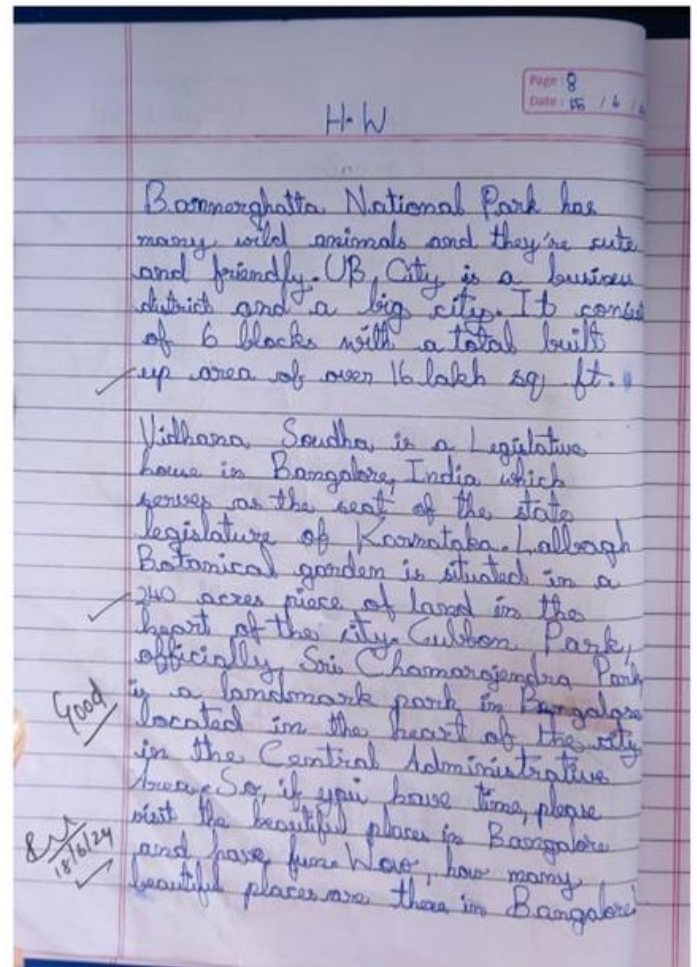 Page: 8
Date: 15 / 6 /
H.W
Bannerghatta National Park has
many wild animals and they're cute
and friendly. UB City is a business
district and a big city. It consist
of 6 blocks with a total built
up area of over 16 lakh sq ft.
Vidhana Soudha is a Legislative
house in Bangalore, India which
serves as the seat of the state
legislature of Karnataka. Lalbagh
Botanical garden is situated in a
240 acres piece of land in the
heart of the city. Cubbon Park,
officially Sri Chamarajendra Park
is a landmark park in Bangalore
located in the heart of the city
in the Central Administrative
Area. So, if you have time, please
visit the beautiful places in Bangalore
and have fun. Wow, how many
beautiful places are there in Bangalore!
Good
18/6/24